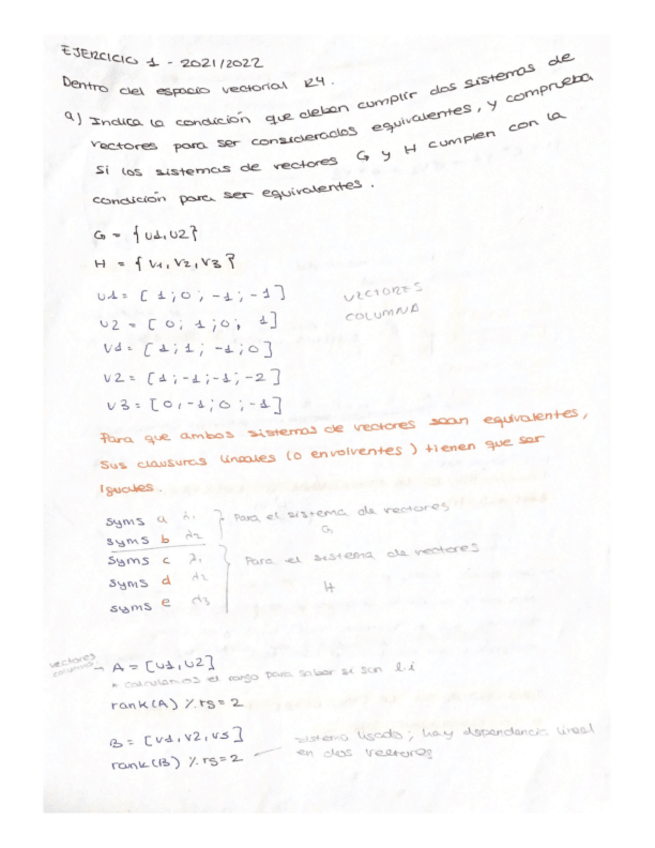 EJERCICIO 1 - 2021/2022
Dentro del espacio vectorial R4.
a) Indica la condición que deben cumplir dos sistemas de
vectores para ser considerados equivalentes, y comprueba
si los sistemas de vectores G y H cumplen con la
condición para ser equivalentes.
G = {u1, u2}
H = {v1, v2, v3}
u1 = [1; 0; -1; -1]
VECTORES
u2 = [0; 1; 0; 1]
COLUMNA
v1 = [1; 1; -1; 0]
v2 = [1; -1; -1; -2]
v3 = [0; -1; 0; -1]
Para que ambos sistemas de vectores sean equivalentes,
sus clausuras lineales (o envolventes) tienen que ser
iguales.
syms a λ1 Para el sistema de vectores
syms b λ2 G
syms c λ1 Para el sistema de vectores
syms d λ2 H
syms e λ3
vectores
columna → A = [u1, u2]
* calculamos el rango para saber si son l.i
rank(A) %rg=2
B = [v1, v2, v3] sistema ligado; hay dependencia lineal
rank(B) %rg=2 en dos vectores